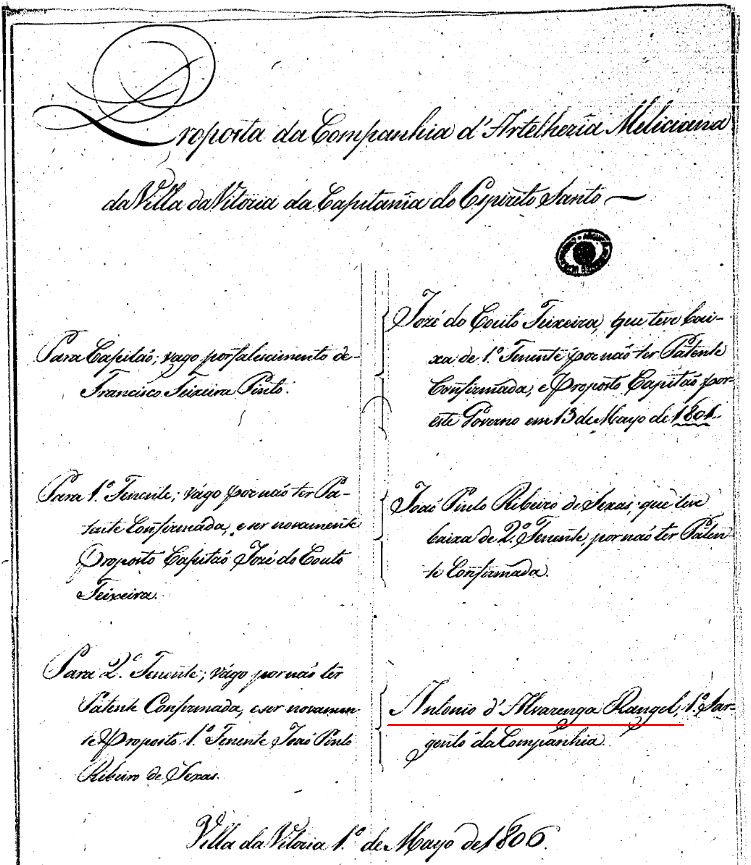 Proposta da Companhia d'Artelheria Meliciana
da Villa da Vitoria da Capitania do Espirito Santo
Para Capitaõ; vago por falescimento de
Francisco Teixeira Pinto.
Jozé do Couto Teixeira, que teve bai-
xa de 1.º Tenente por naõ ter Patente
Confirmada, e Proposto Capitaõ por
este Governo em 13 de Mayo de 1801.
Para 1.º Tenente; vago por naõ ter Pa-
tente Confirmada, e ser novamente
Proposto Capitaõ Jozé do Couto
Teixeira.
Joaõ Pinto Ribeiro de Sexas, que teve
baixa de 2.º Tenente, por naõ ter Paten-
te Confirmada.
Para 2.º Tenente; vago por naõ ter
Patente Confirmada, e ser novamen-
te Proposto 1.º Tenente Joaõ Pinto
Ribeiro de Sexas.
Antonio d'Alvarenga Rangel, 1.º Sar-
gento da Companhia.
Villa da Vitoria 1.º de Mayo de 1806.